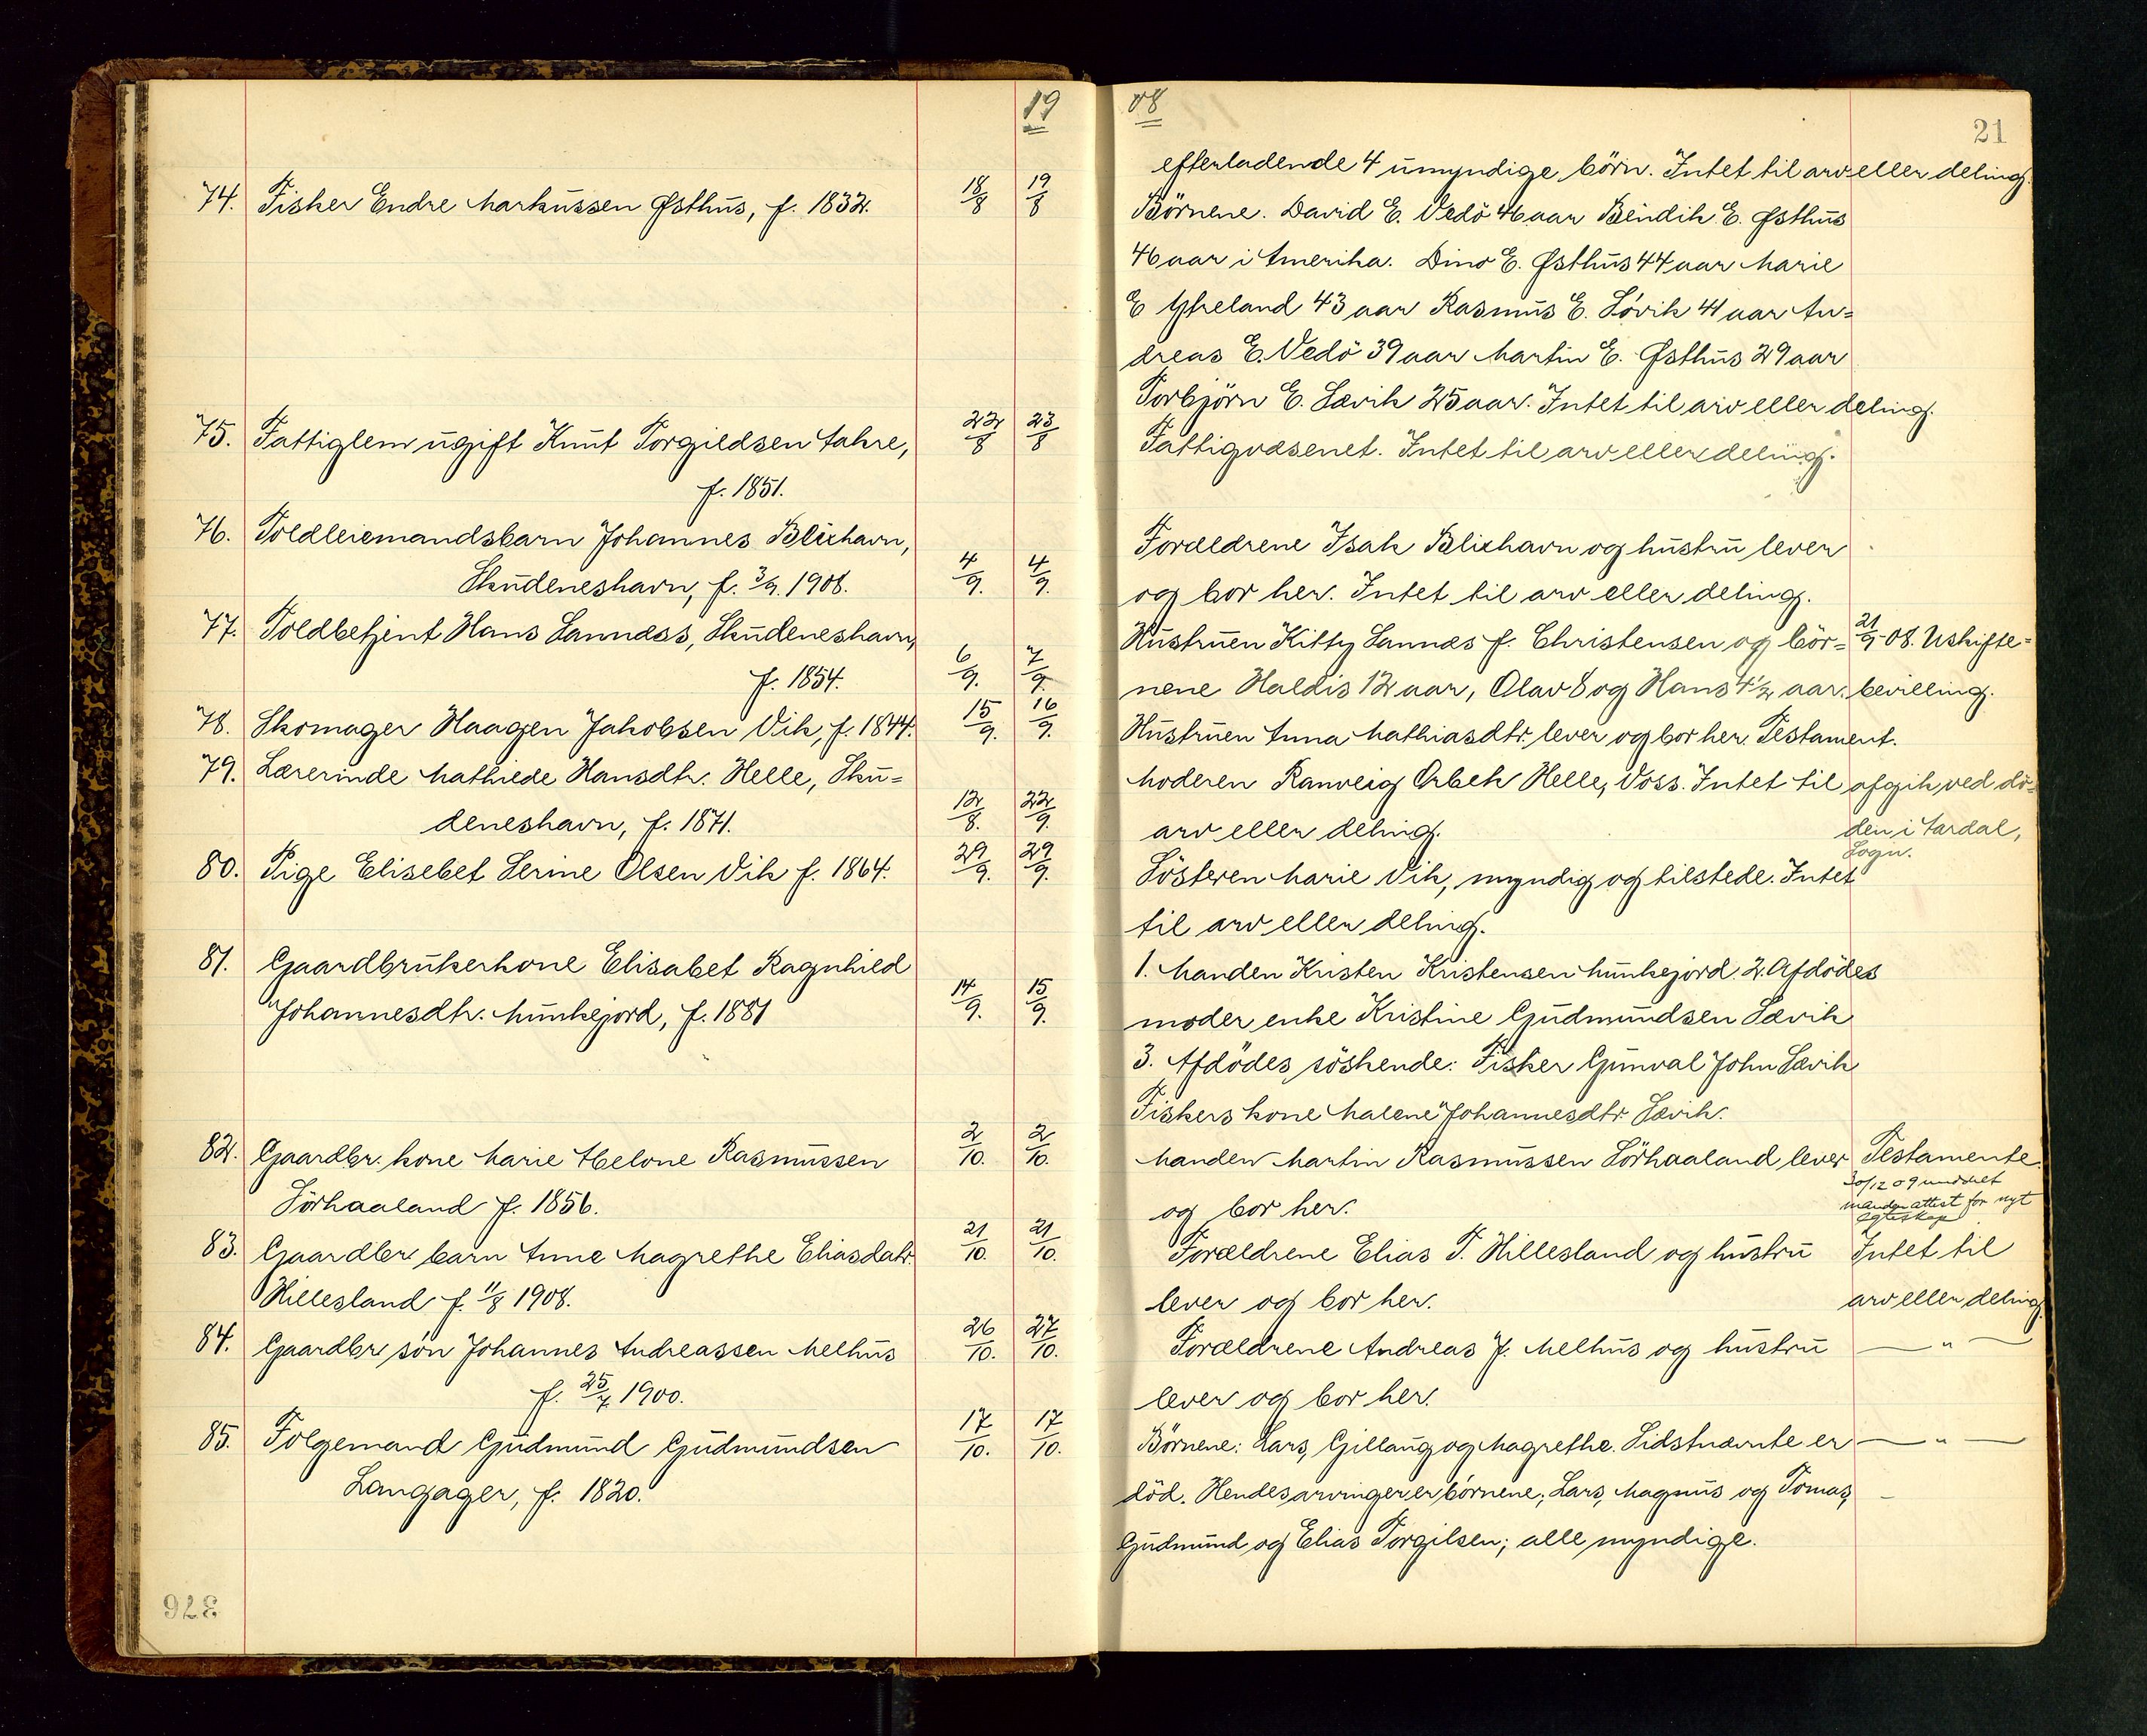 19
74. Fisker Endre Markussen Østhus, f. 1832. 18/8 19/8
75. Fattiglem ugift Knut Torgildsen Aakre, 22/8 23/8
f. 1851.
76. Toldleiemandsbarn Johannes Blixhavn,
Skudeneshavn, f. 3/9. 1908. 4/9. 4/9.
77. Toldbetjent Hans Sannæss, Skudeneshavn,
f. 1854. 6/9. 7/9.
78. Skomager Haagen Jakobsen Vik, f. 1844. 15/9. 16/9.
79. Lærerinde Mathilde Hansdtr. Helle, Sku=
deneshavn, f. 1871. 12/8. 22/9.
80. Pige Elisebet Serine Olsen Vik f. 1864. 29/9. 29/9.
81. Gaardbrukerkone Elisabet Ragnhild
Johannesdtr. Munkejord, f. 1881 14/9. 15/9.
82. Gaardbr. kone Marie Helone Rasmussen 2/10. 2/10.
Sörhaaland f. 1856.
83. Gaardbr barn Anne Magrethe Eliasdatr. 21/10. 21/10.
Hillesland f. 11/8 1908.
84. Gaardbr sön Johannes Andreassen Melhus 26/10. 27/10.
f. 25/7 1900.
85. Folgemand Gudmund Gudmundsen 17/10. 17/10.
Langager, f. 1820.
376
08
21
efterladende 4 umyndige börn. Intet til arv eller deling.
Börnene. David E. Vedö 46 aar Bendik E. Østhus
46 aar i Amerika. Dino E. Østhus 44 aar Marie
E Ytreland 43 aar Rasmus E. Sövik 41 aar An=
dreas E. Vedö 39 aar Martin E. Østhus 29 aar
Torbjörn E. Sævik 25 aar. Intet til arv eller deling.
Fattigvæsenet. Intet til arv eller deling.
Forældrene Isak Blixhavn og hustru lever
og bor her. Intet til arv eller deling.
Hustruen Kitty Sannæs f. Christensen og bör= 21/9 08. Uskifte=
nene Haldis 12 aar, Olav 8 og Hans 4 1/2 aar. bevilling.
Hustruen Anna Mathiasdtr. lever og bor her. Testament.
Moderen Ranveig Orbek Helle, Voss. Intet til afgik ved dö=
arv eller deling. den i Aardal,
Sogn.
Sösteren Marie Vik, myndig og tilstede. Intet
til arv eller deling.
1. Manden Kristen Kristensen Munkejord. 2. Afdödes
moder enke Kristine Gudmundsen Sævik
3. Afdödes söskende: Fisker Gunval John Sævik
Fiskers kone Malene Johannesdtr. Sævik.
Manden Martin Rasmussen Sörhaaland lever Testamente.
og bor her. 30/12 09 meddelt
manden attest for nyt
egteskap
Forældrene Elias T. Hillesland og hustru Intet til
lever og bor her. arv eller deling.
Forældrene Andreas J. Melhus og hustru — " —
lever og bor her.
Börnene: Lars, Gillaug og Magrethe. Sidstnævnte er — " —
död. Hendes arvinger er börnene; Lars, Magnus og Tomas,
Gudmund og Elias Torgilsen; alle myndige.